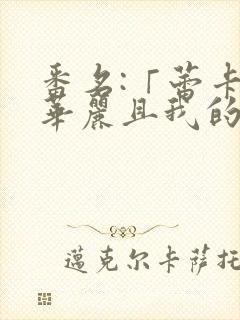 番名:「蕾卡
華麗且我的
邁克尔卡萨托